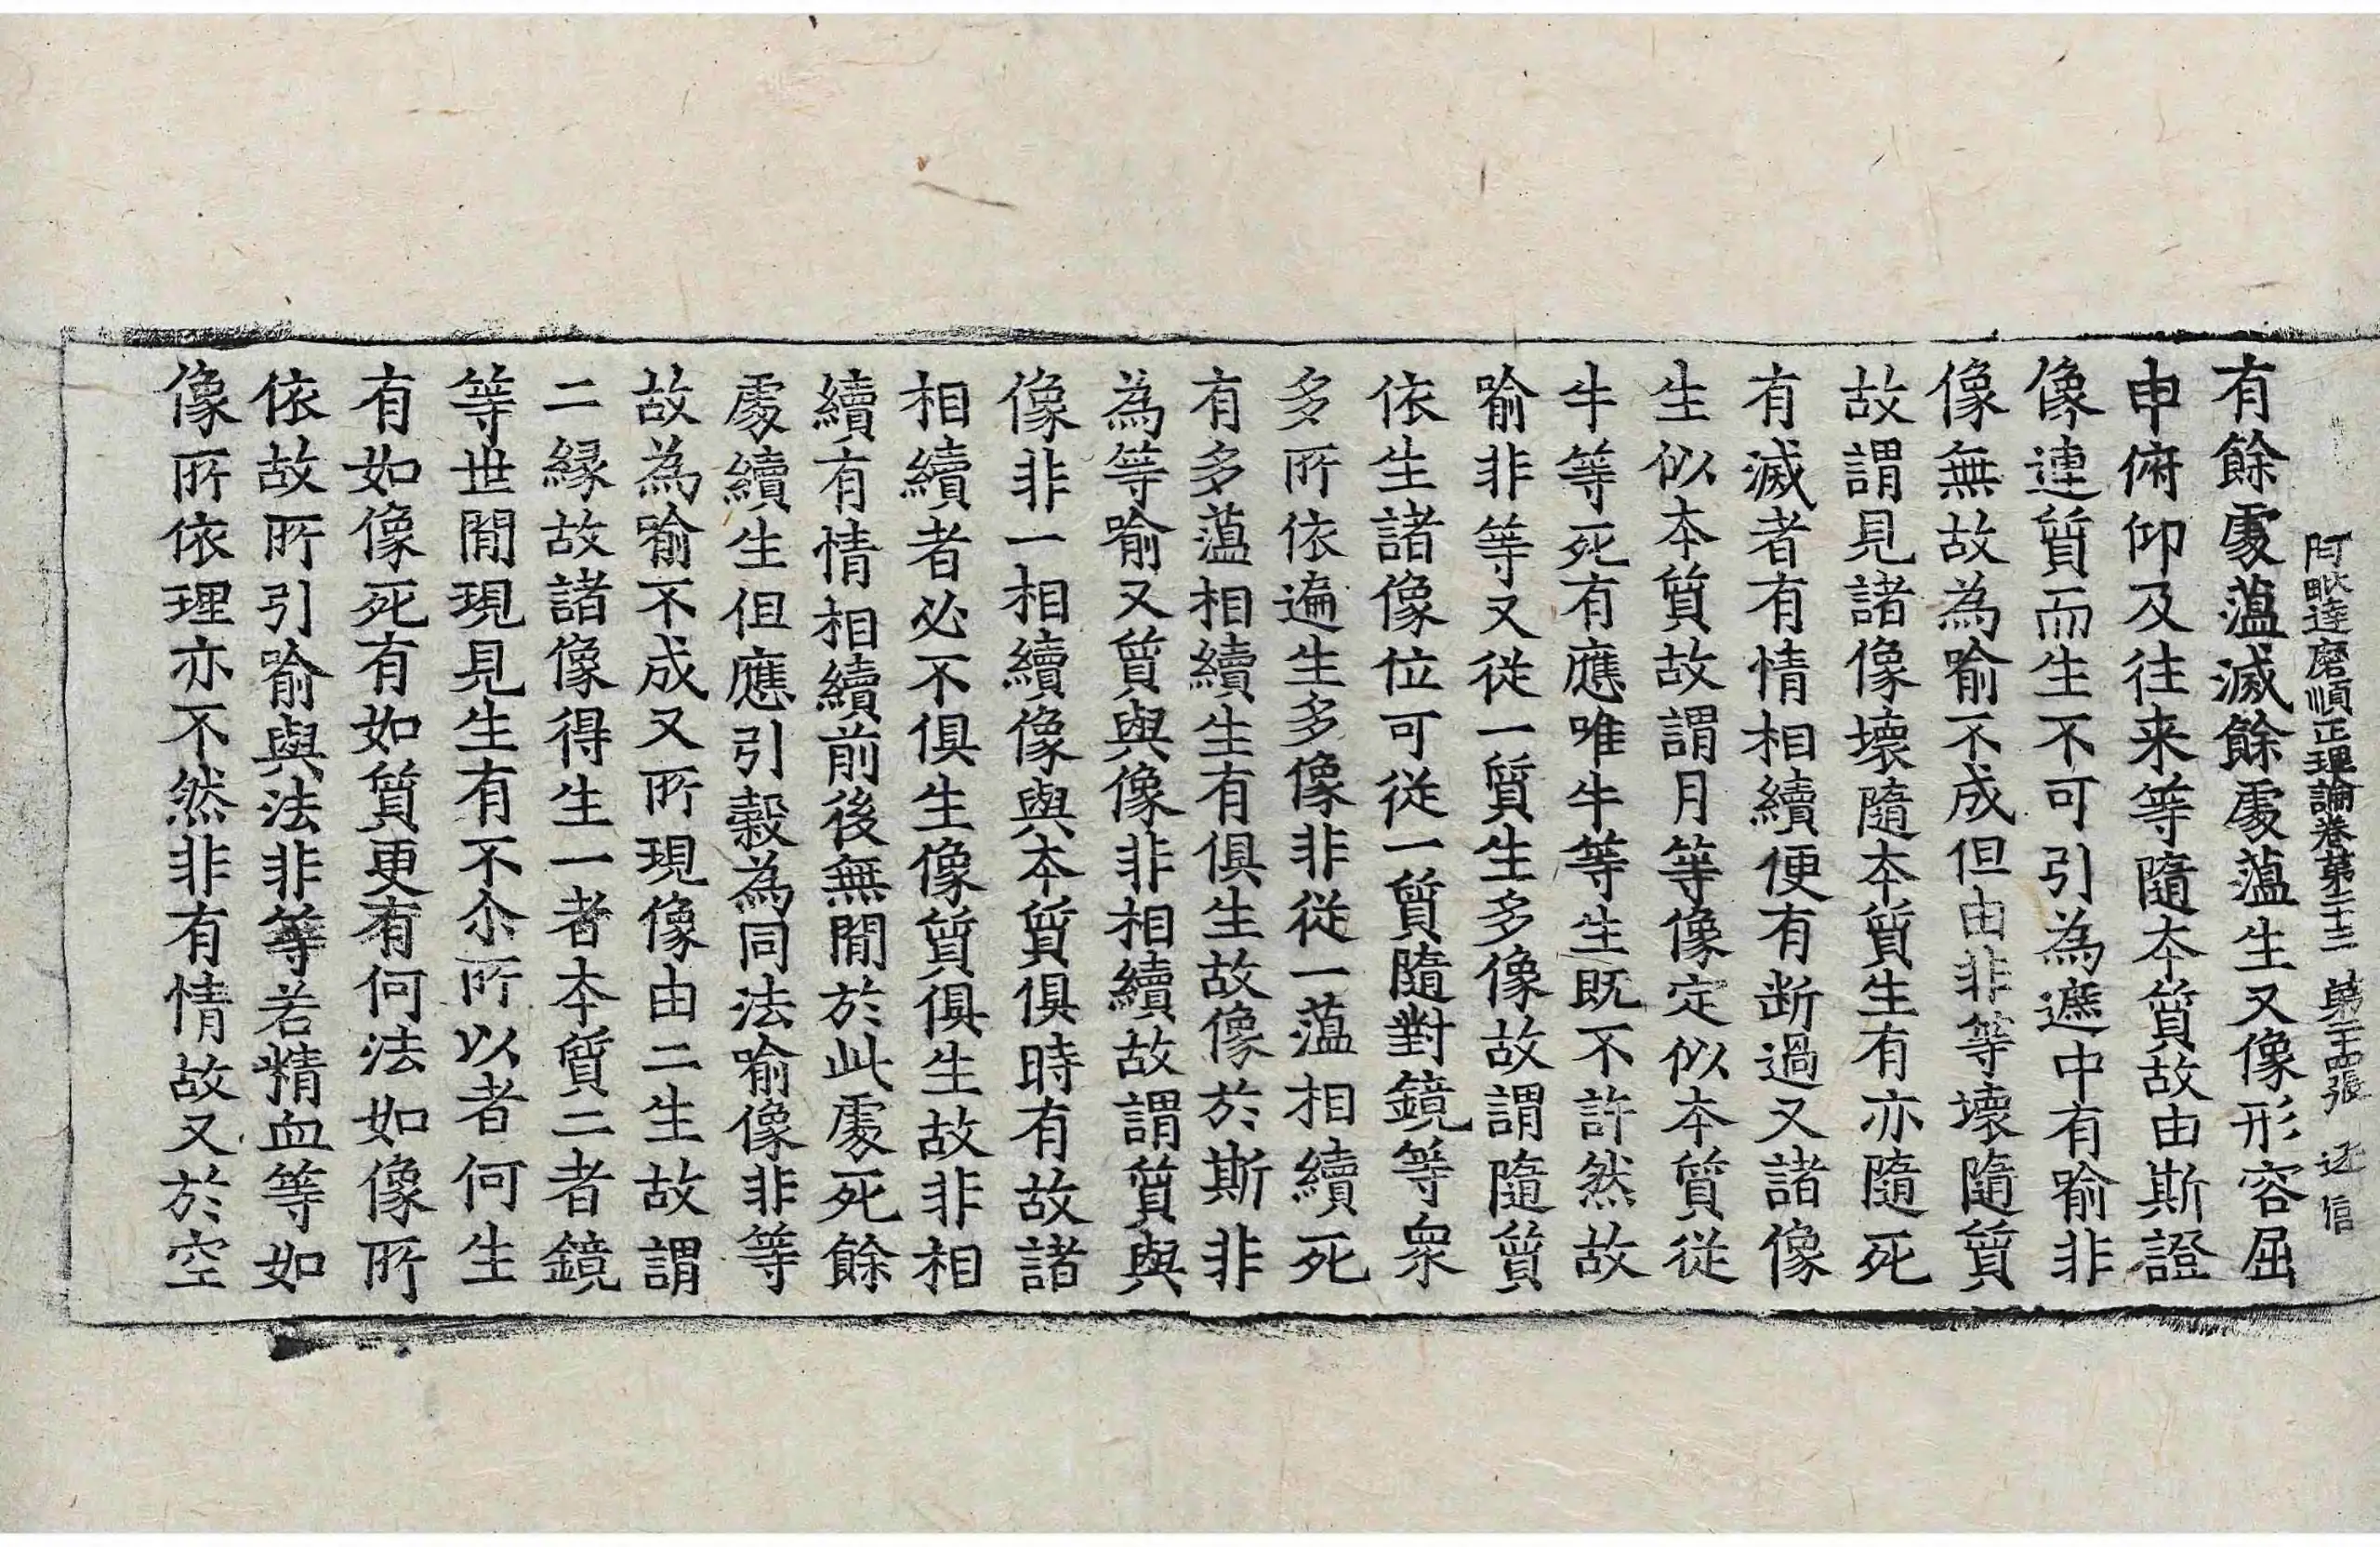 阿毗達磨順正理論卷第二十三 第二十四張 迂信
有餘處蕰滅餘處蕰生又像形容屈
申俯仰及往来等隨本質故由斯證
像連質而生不可引為遮中有喻非
像無故為喻不成但由非等壞隨質
故謂見諸像壞隨本質生有亦隨死
有滅者有情相續便有断過又諸像
生似本質故謂月等像定似本質從
牛等死有應唯牛等生既不許然故
喻非等又從一質生多像故謂隨質
依生諸像位可從一質隨對鏡等衆
多所依遍生多像非從一蕰相續死
有多蕰相續生有俱生故像於斯非
為等喻又質與像非相續故謂質與
像非一相續像與本質俱時有故諸
相續者必不俱生像質俱生故非相
續有情相續前後無間於此處死餘
處續生但應引穀為同法喻像非等
故為喻不成又所現像由二生故謂
二縁故諸像得生一者本質二者鏡
等世間現見生有不尒所以者何生
有如像死有如質更有何法如像所
依故所引喻與法非等若精血等如
像所依理亦不然非有情故又於空